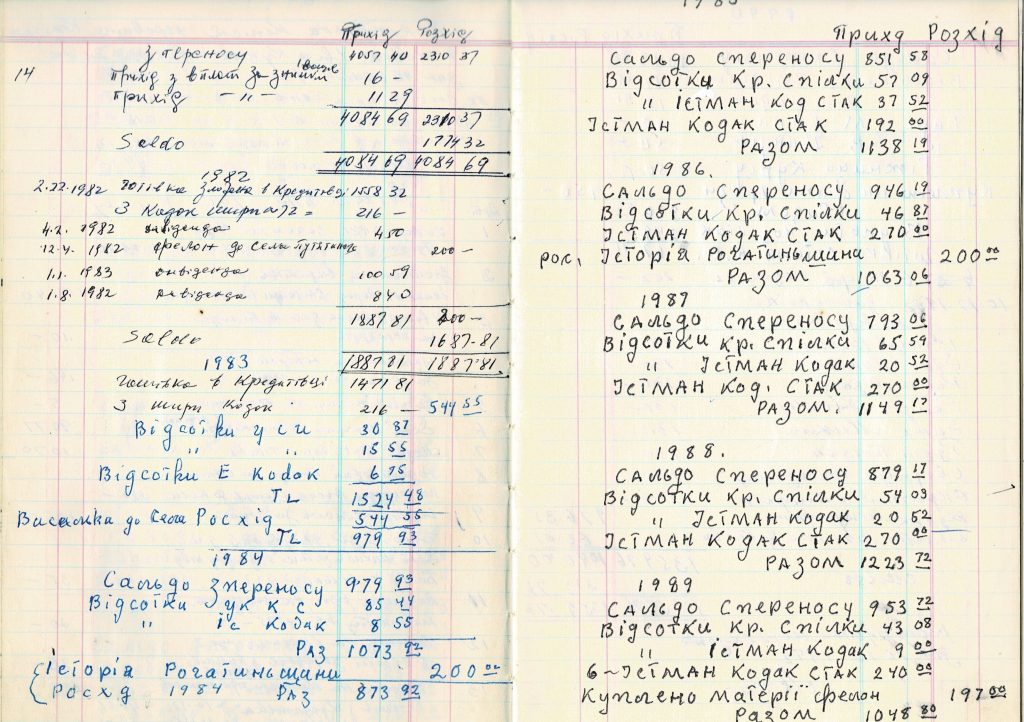 Прихід Розхід
З переносу 4057 40 2310 37
14 Прихід з вплот за
16 —
Прихід —"— 11 29
4084 69 2310 37
Saldo 1774 32
4084 69 4084 69
1982
1982 готівка зложена в Кредитівці 1558 32
З Кодак 216 —
1982 дивіденда 450
1982 фелон до села 200 —
1.1. 1983 дивіденда 100 59
1.8. 1982 дивіденда 8 40
1887 81 200 —
Saldo 1687-81
1983 1887 81 1887 81
готівка в Кредитівці 1471 81
З Кодак 216 — 544 55
Відсотки у си 30 87
" " 15 55
Відсотки Е Кодак 6 75
TL 1524 48
до села Росхід 544 55
TL 979 93
1984
Сальдо Зпереносу 979 93
Відсотки У К К С 85 44
" Іс Кодак 8 55
РАЗ 1073 92
Історія Рогатиньщини 200 00
Росхд 1984 РАЗ 873 92
Прихд Розхід
Сальдо Спереносу 851 58
Відсотки Кр. Спілки 57 09
" Істман Код Стак 37 52
Істман Кодак Стак 192 00
Разом 1138 19
1986.
Сальдо Спереносу 946 19
Відсотки Кр. Спілки 46 87
Істман Кодак Стак 270 00
рос. Історія Рогатиньшина 200 00
Разом 1063 06
1987
Сальдо Спереносу 793 06
Відсотки Кр. Спілки 65 59
" Істман Кодак 20 52
Істман Код. Стак 270 00
Разом. 1149 17
1988.
Сальдо Спереносу 879 17
Відсотки Кр. Спілки 54 03
" Істман Кодак 20 52
Істман Кодак Стак 270 00
Разом 1223 72
1989
Сальдо Спереносу 953 72
Відсотки Кр. Спілки 43 08
" Істман Кодак 9 00
6~Істман Кодак Стак 240 00
Куплено матерії фелон 197 00
Разом 1048 80